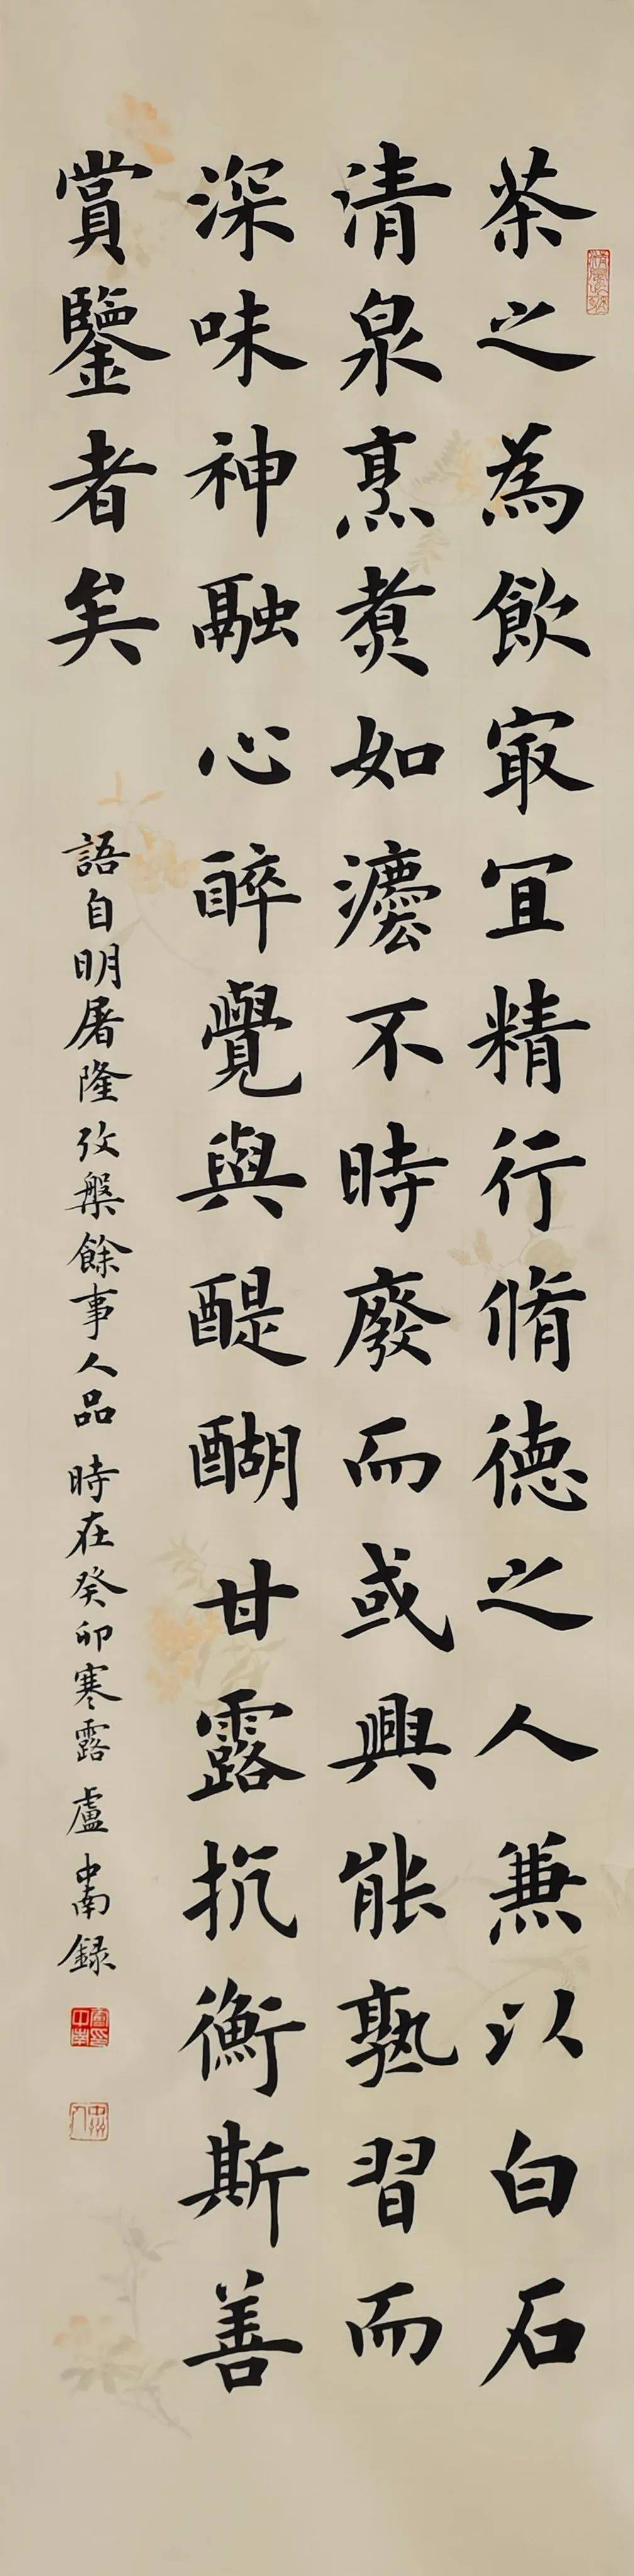 茶之為飲冣冝精行脩德之人兼以白石
清泉烹煑如灋不時廢而或興能熟習而
深味神融心醉覺與醍醐甘露抗衡斯善
賞鑒者矣
語自明屠隆攷槃餘事人品 時在癸卯寒露 盧中南録